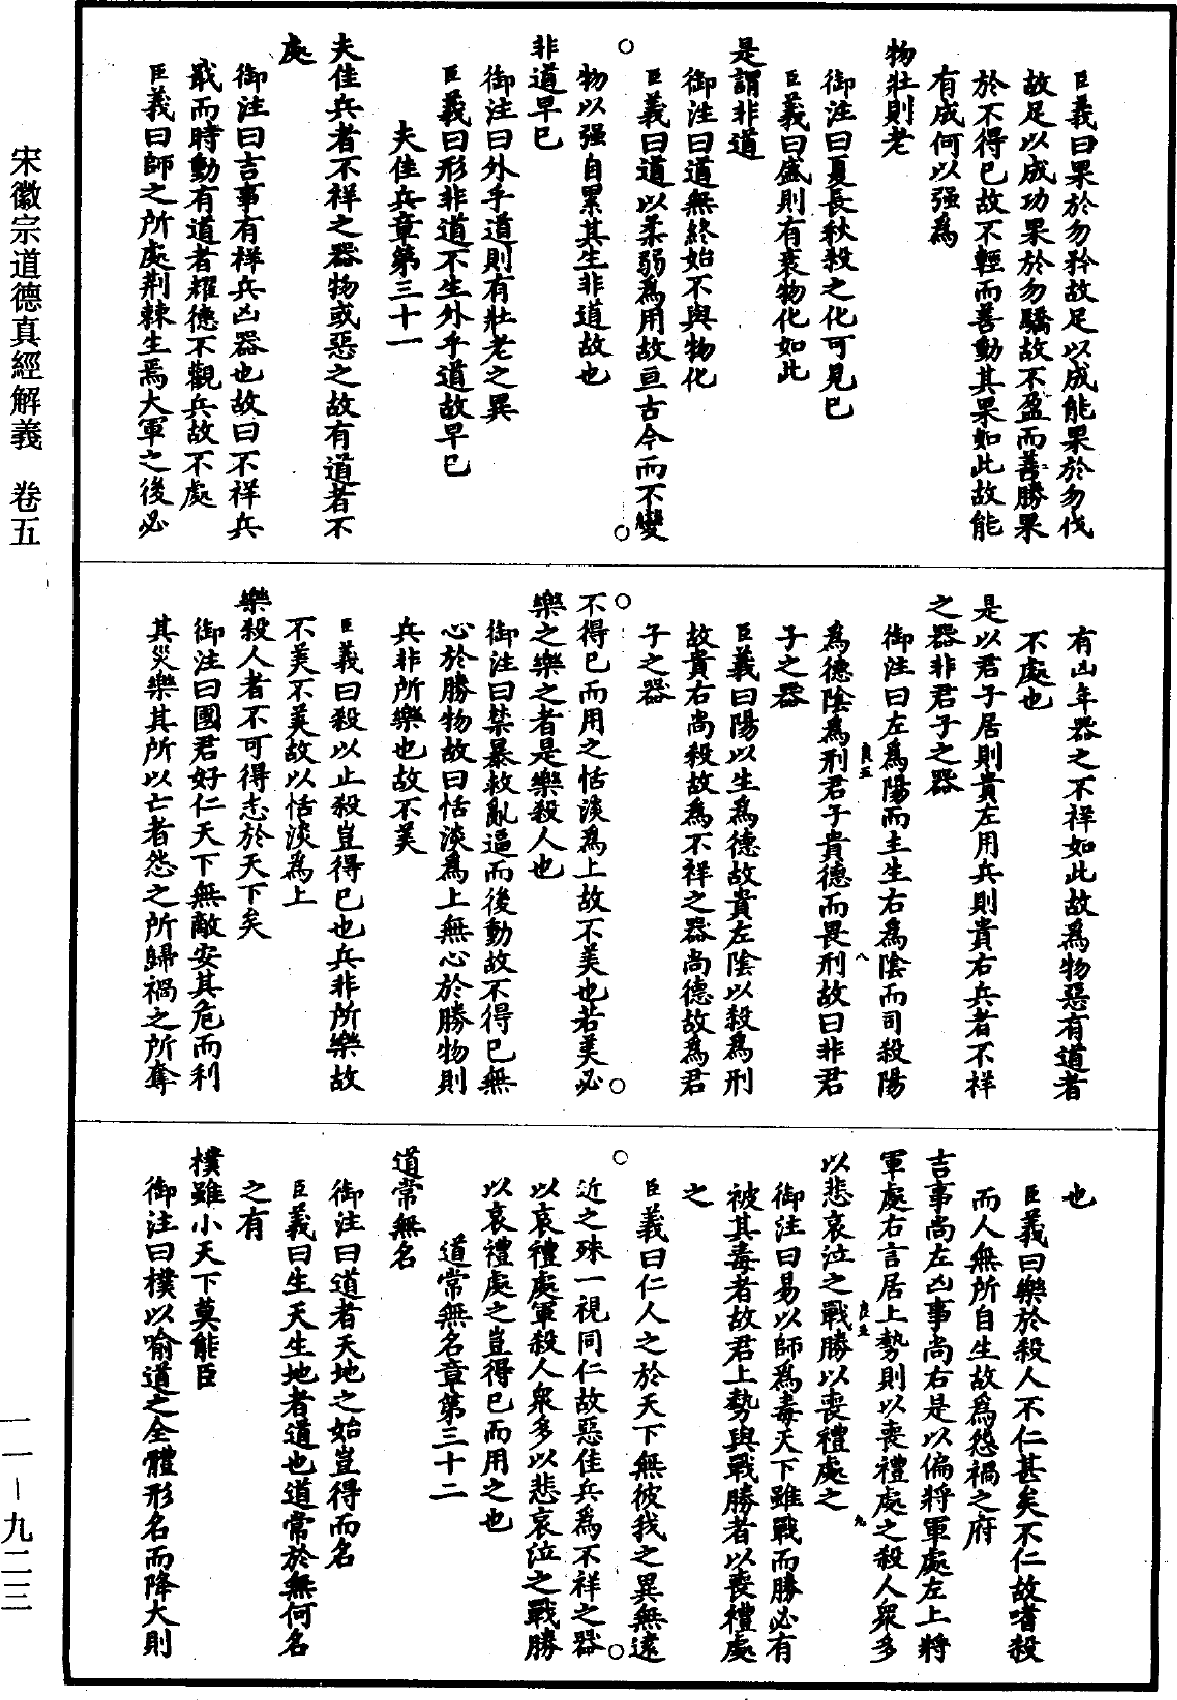 臣義曰果於勿矜故足以成能果於勿伐
故足以成功果於勿驕故不盈而善勝果
於不得已故不輕而善動其果如此故能
有成何以强為
物壯則老
御注曰夏長秋殺之化可見已
臣義曰盛則有衰物化如此
是謂非道
御注曰道無終始不與物化
臣義曰道以柔弱為用故亘古今而不變
物以强自累其生非道故也
非道早已
御注曰外乎道則有壯老之異
臣義曰形非道不生外乎道故早已
夫佳兵章第三十一
夫佳兵者不祥之器物或惡之故有道者不
處
御注曰吉事有祥兵凶器也故曰不祥兵
戢而時動有道者耀德不觀兵故不處
臣義曰師之所處荆棘生焉大軍之後必
有凶年器之不祥如此故為物惡有道者
不處也
是以君子居則貴左用兵則貴右兵者不祥
之器非君子之器
御注曰左為陽而主生右為陰而司殺陽
良五 八
為德陰為刑君子貴德而畏刑故曰非君
子之器
臣義曰陽以生為德故貴左陰以殺為刑
故貴右尚殺故為不祥之器尚德故為君
子之器
不得已而用之恬淡為上故不美也若美必
樂之樂之者是樂殺人也
御注曰禁暴救亂逼而後動故不得已無
心於勝物故曰恬淡為上無心於勝物則
兵非所樂也故不美
臣義曰殺以止殺豈得已也兵非所樂故
不美不美故以恬淡為上
樂殺人者不可得志於天下矣
御注曰國君好仁天下無敵安其危而利
其災樂其所以亡者怨之所歸禍之所奪
也
臣義曰樂於殺人不仁甚矣不仁故嗜殺
而人無所自生故為怨禍之府
吉事尚左凶事尚右是以偏將軍處左上將
軍處右言居上勢則以喪禮處之殺人衆多
良五 九
以悲哀泣之戰勝以喪禮處之
御注曰易以師為毒天下雖戰而勝必有
被其毒者故君上勢與戰勝者以喪禮處
之
臣義曰仁人之於天下無彼我之異無遠
近之殊一視同仁故惡佳兵為不祥之器
以哀禮處軍殺人衆多以悲哀泣之戰勝
以哀禮處之豈得已而用之也
道常無名章第三十二
道常無名
御注曰道者天地之始豈得而名
臣義曰生天生地者道也道常於無何名
之有
樸雖小天下莫能臣
御注曰樸以喻道之全體形名而降大則
宋徽宗道德真經解義 卷五
一一－九二三